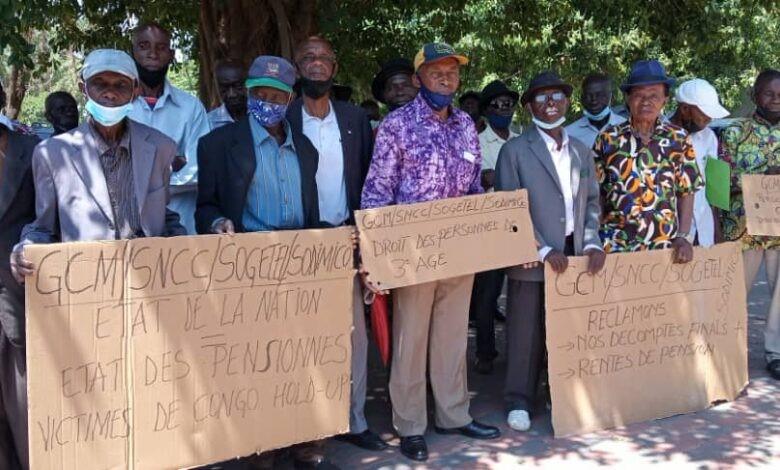 GCM/SNCC/SOGETEL/SODIMICO
ETAT DE LA NATION
=
ETAT DES PENSIONNES
VICTIMES DE CONGO HOLD-UP
GCM/SNCC/SOGETEL/SODIMICO
DROIT DES PERSONNES DE
3e AGE
GCM/SNCC/SOGETEL
SODIMICO
RECLAMONS
→ NOS DECOMPTES FINALS +
→ RENTES DE PENSION